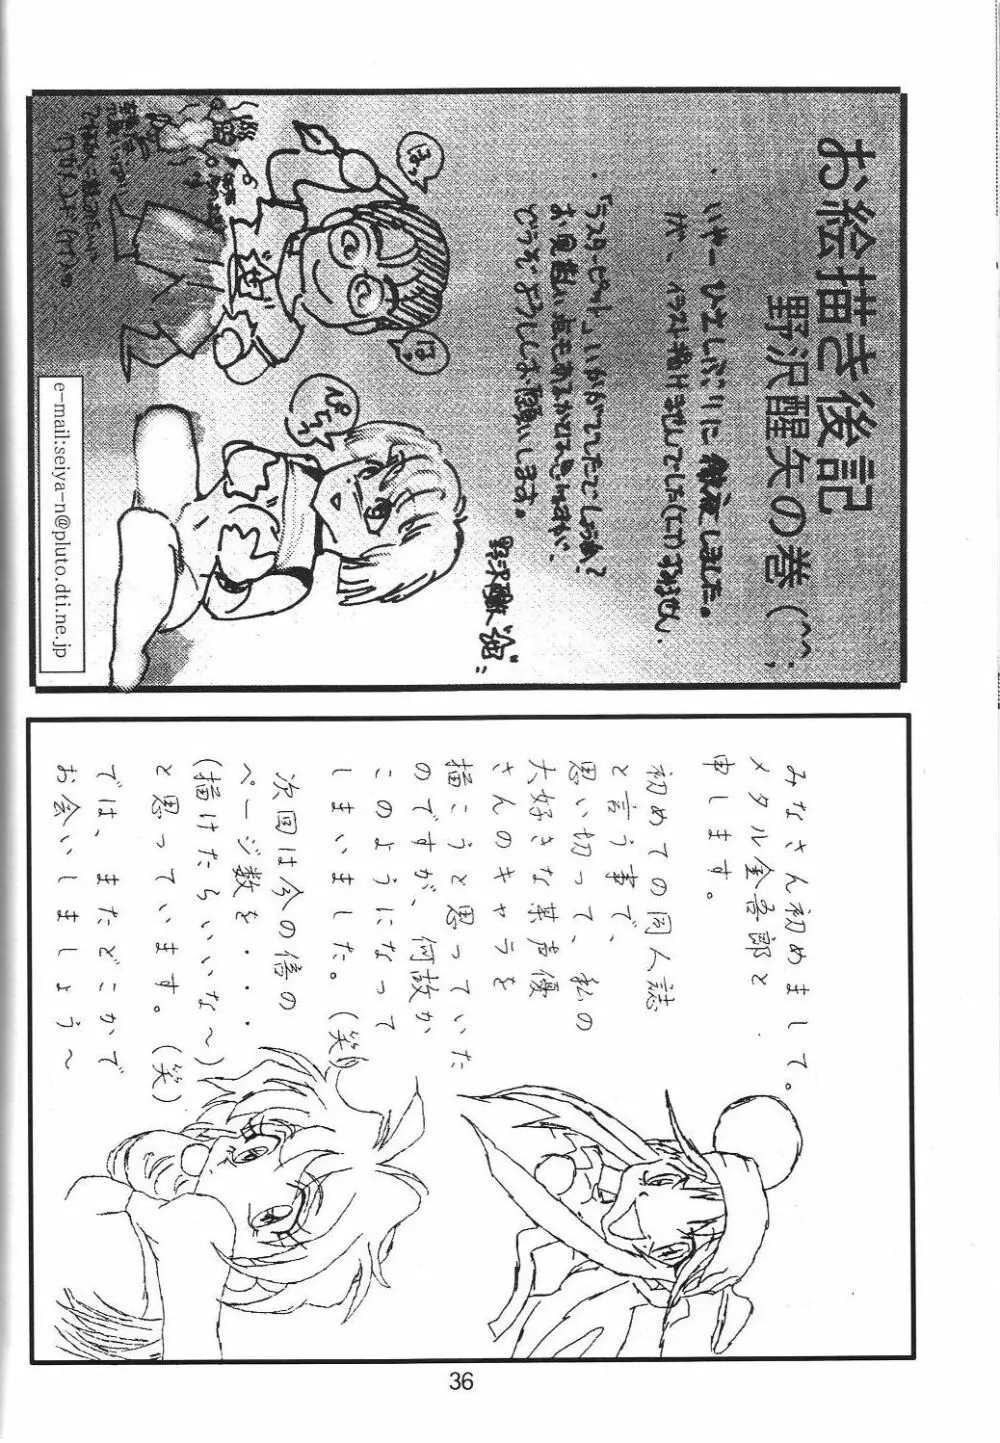 お絵描き後記
野沢醒矢の巻(^^;
・いやー ひさしぶりに徹夜しました。
が、イラスト描けませんでした(TTすみません.
・「ラスターピット」いかがでしたでしょうか?
お見苦しい点もあるかと思いますが、
どうぞよろしくお願いします。
ほっ
ほっ
ぴちちっ
e-mail:seiya-n@pluto.dti.ne.jp
みなさん初めまして。
メタル金吾郎と
申します。
初めての同人誌
と言う事で、
思い切って、私の
大好きな某声優
さんのキャラを
描こうと思っていた
のですが、何故か
このようになって
しまいました。(笑)
次回は今の倍の
ページ数を・・・
(描けたらいいな~)
と思っています。(笑)
では、またどこかで
お会いしましょう~
36